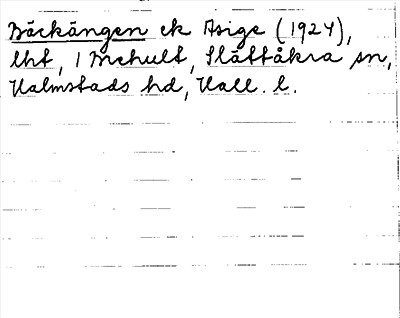 Bäckängen ek Asige (1924),
lht, 1 Mehult, Slättåkra sn,
Halmstads hd, Hall. l.